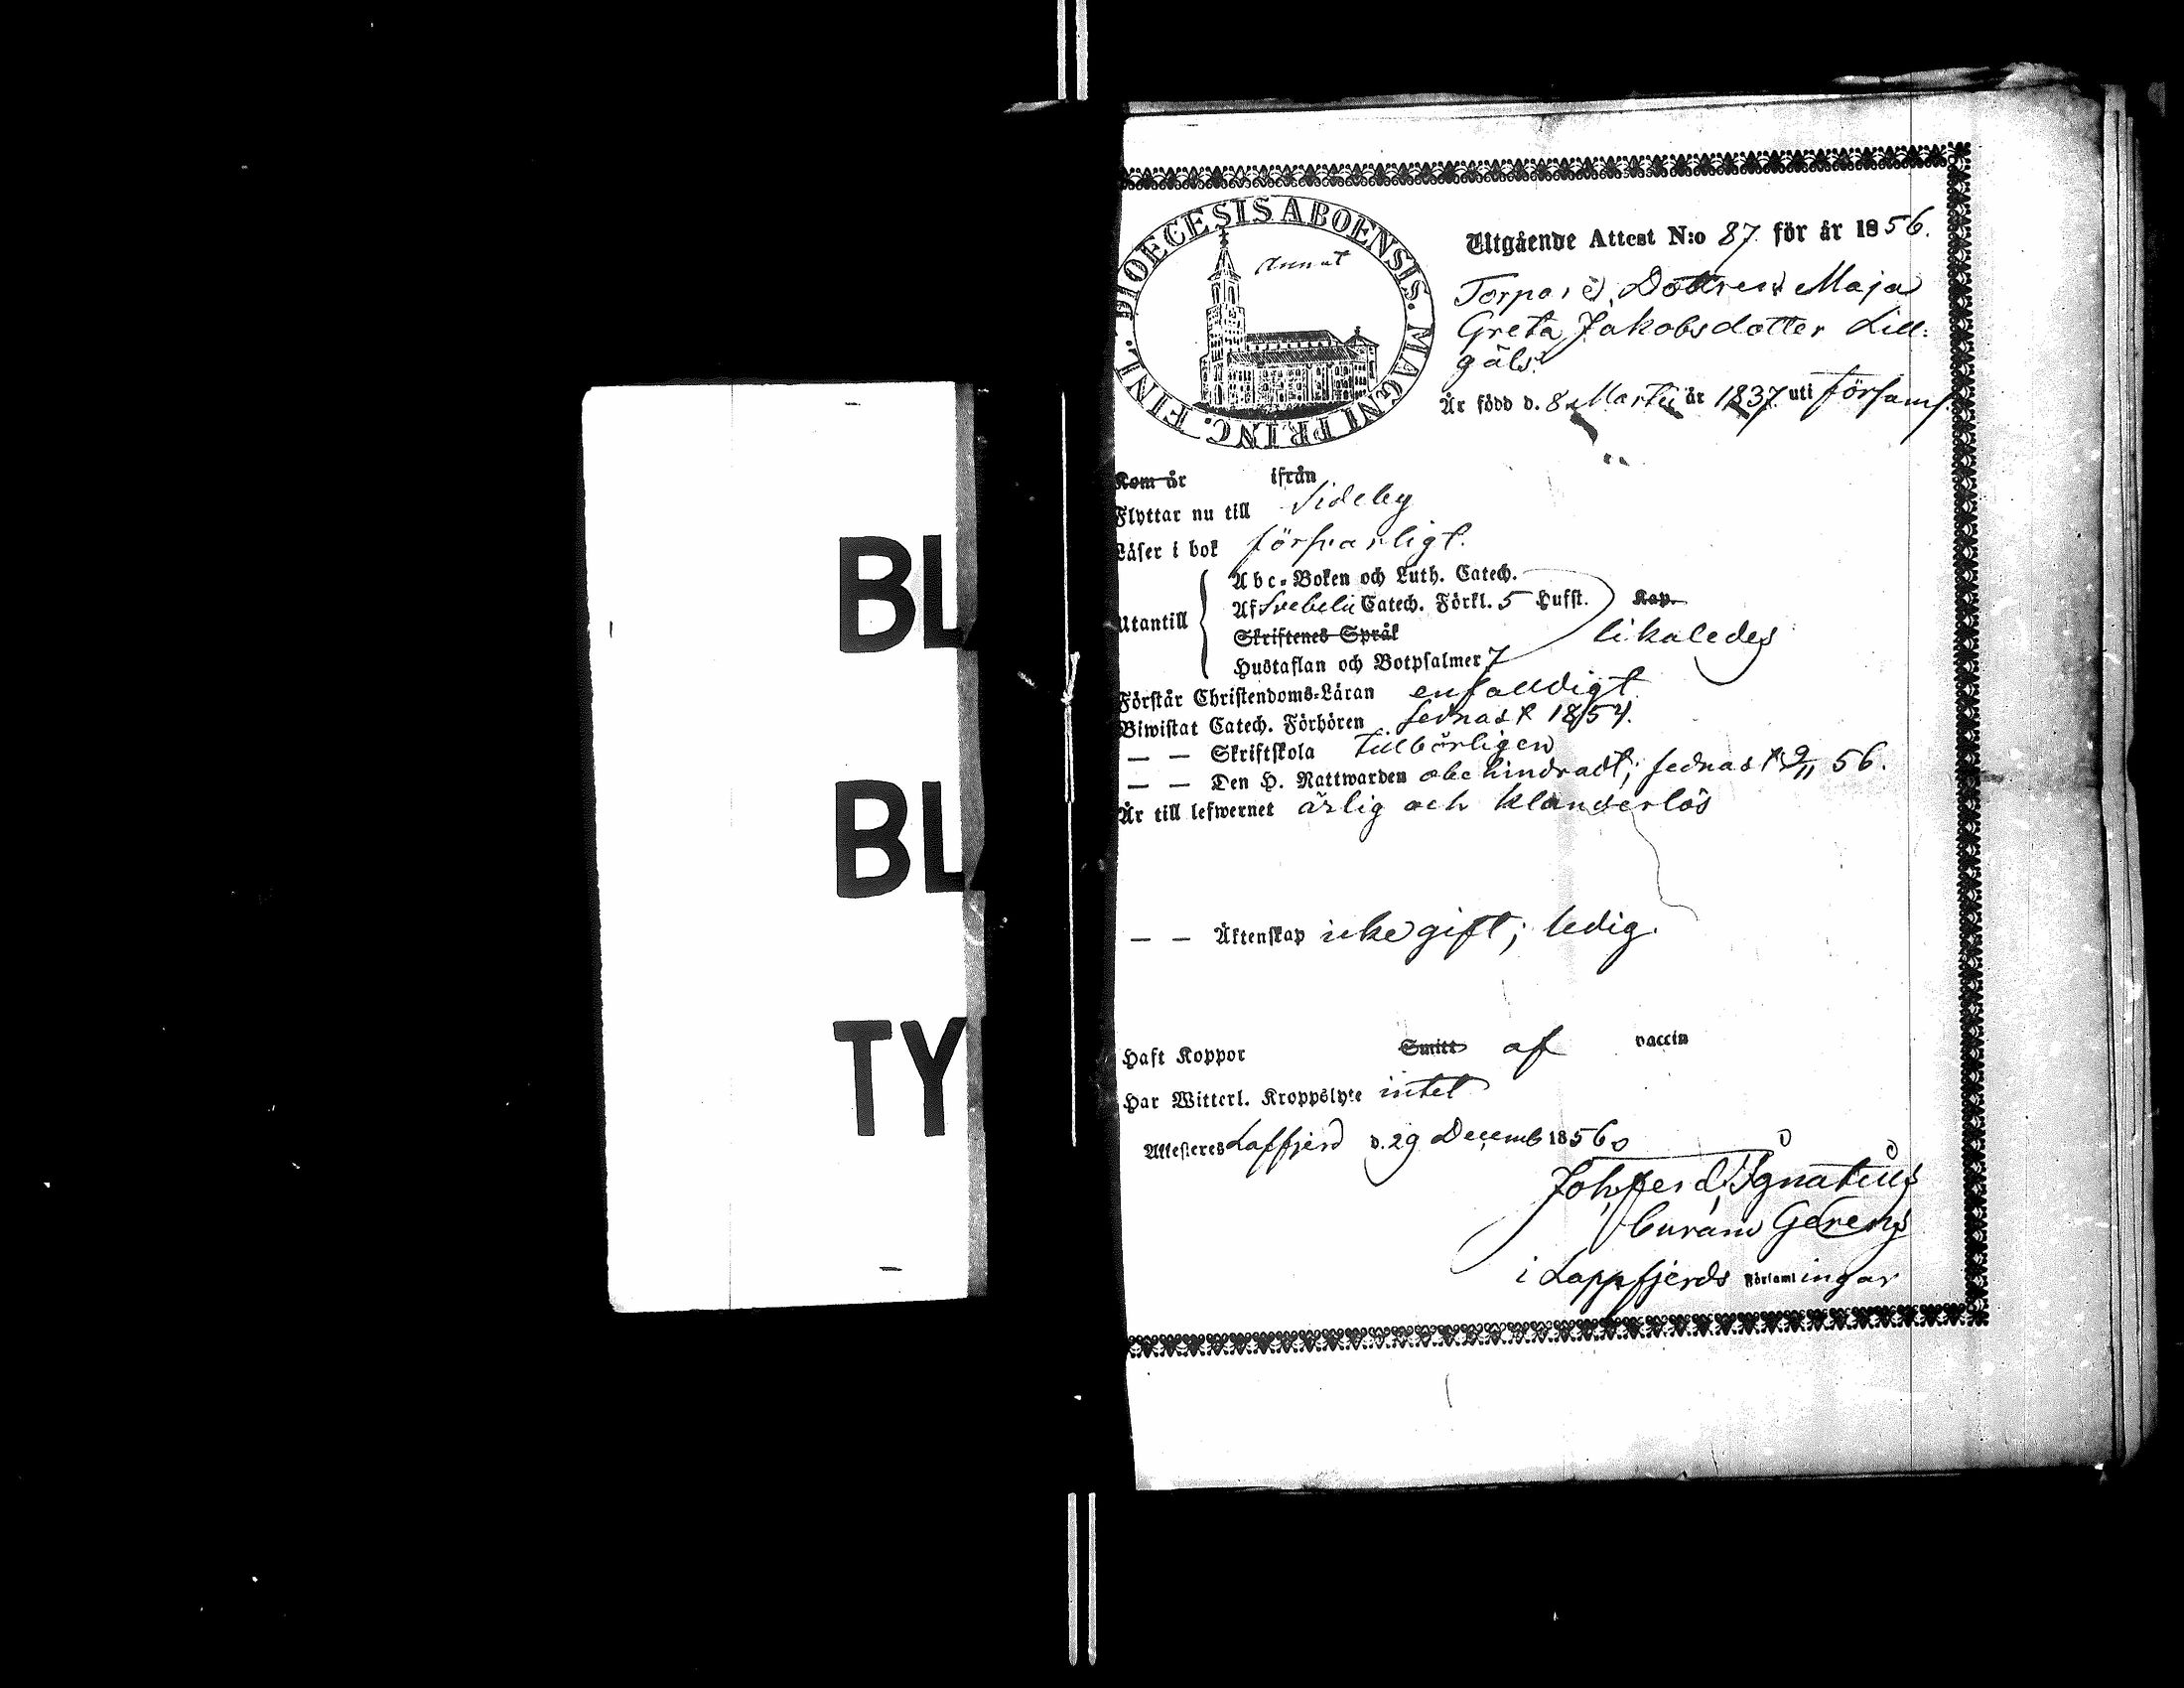 BL
BL
TY
DIOECESIS ABOENSIS. MAGNI PRINC. FINL.
Utgående Attest N:o 87 för år 1856.
Torpar Dottren Maja
Greta Jakobsdotter Lill-
gäls
Är född d. 8 Martii år 1837 uti församl.
Kom år ifrån
Flyttar nu till Sideby
Läser i bok försvarligt.
Utantill
Abc-Boken och Luth. Catech.
Af Svebelii Catech. Förkl. 5 Hufst. Kap.
Skriftenes Språk likaledes
Hustaflan och Botpsalmer 7
Förstår Christendoms-Läran enfaldigt
Biwistat Catech. Förhören sednast 1854.
— — Skriftskola tillbörligen
— — Den H. Nattwarden obehindradt; sednast 9/11 56.
Är till lefwernet ärlig och klanderlös
— — Äktenskap icke gift; ledig.
Haft Koppor Smitt af vaccin
Har Witterl. Kroppslyte intet
Attesteres Lappfjerd d. 29 Decemb 1856
Joh. Ferd. Ignatius
Curam Gerens
i Lappfjerds Församlingar